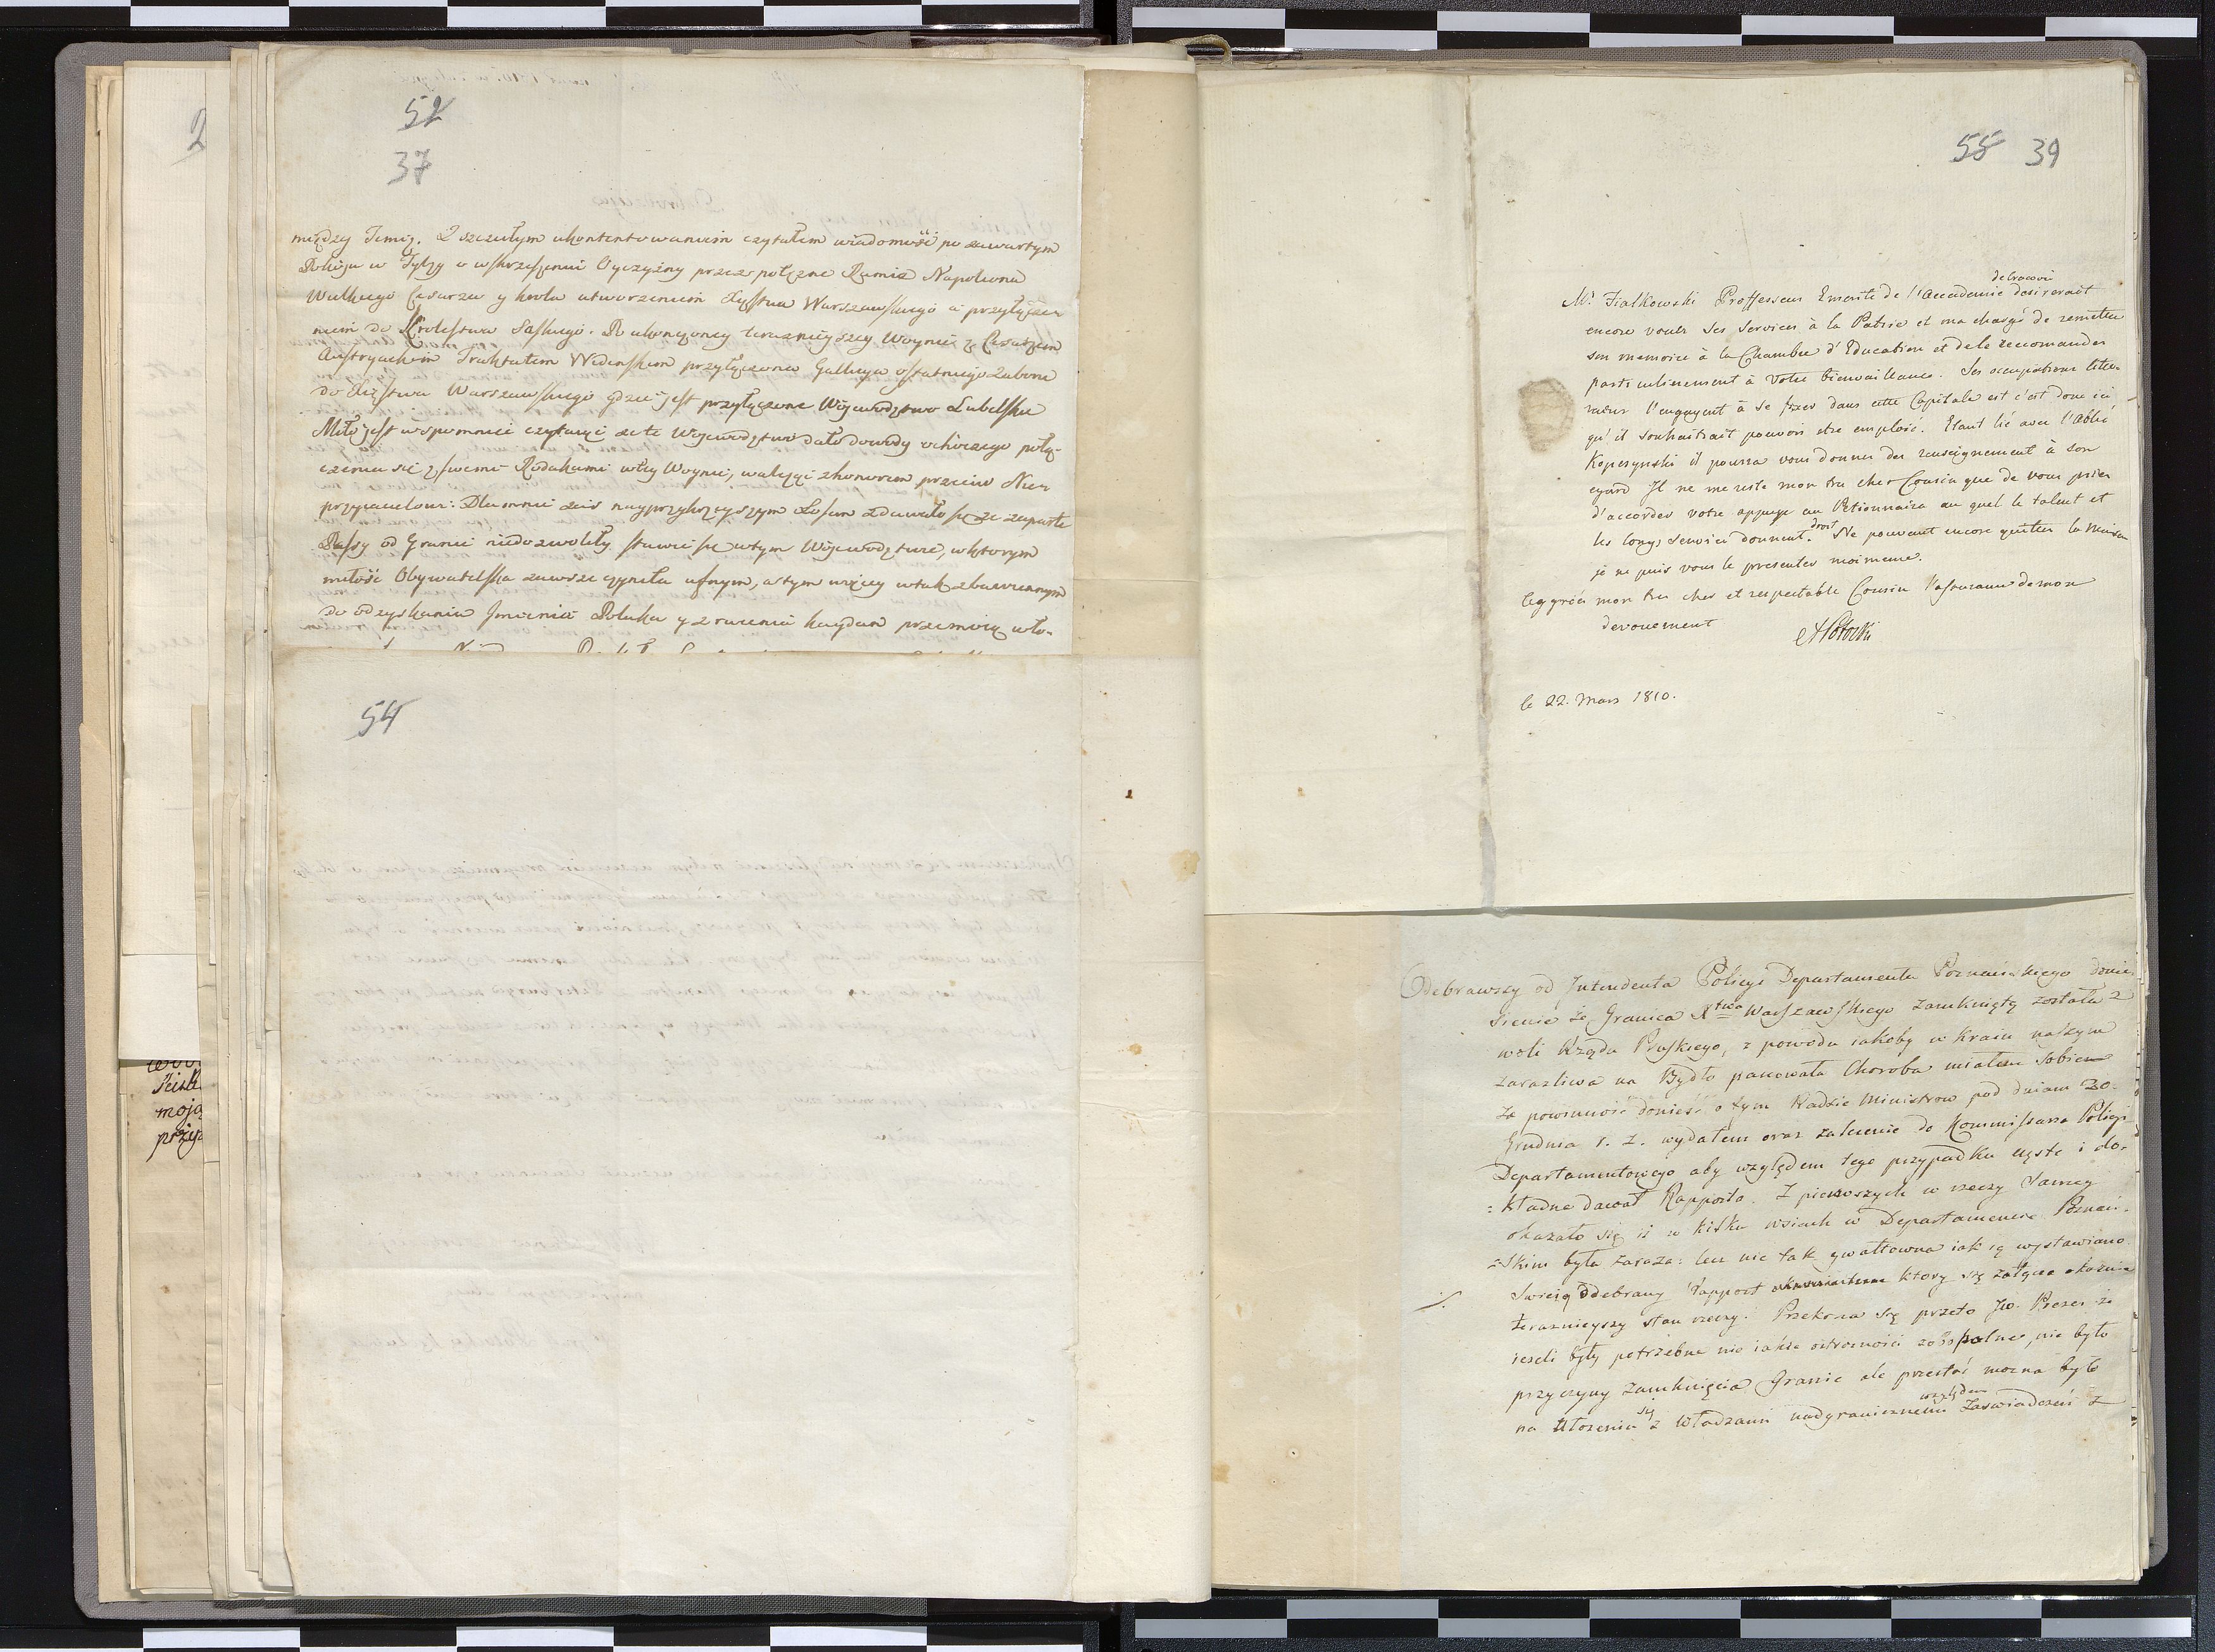 2
52
37
między Temiż. Z szczułym ukontentowaniem czytałem wiadomość po zawartym
Pokoju w Tylży o wskrzeszeniu Oyczyzny przez potężne Ramie Napoleona
Wielkiego Cesarza y Krola utworzeniem Xięstwa Warszawskiego a przyłącze
niem do Krolestwa Saskiego. Po ukończoney teraznieyszey Woynie z Cesarzem
Austryackim Traktatem Wideńskim przyłączona Gallicya ostatniego Zaboru
do Xięstwa Warszawskiego gdzie jest przyłączone Województwo Lubelskie
Miło jest wspomnieć czytaiąc że te Województwo dało dowody ochoczego połą-
czenia się z swemi Rodakami w tey Woynie, walcząc z honorem przeciw Nie
przyiacielowi: Dla mnie zaś nayprzykrzeyszym Losem zdawało się że zaparte
Passy od Granic niedozwoliły stawić się w tym Województwie, w którym
miłość Obywatelska zawsze czyniła ufnym, a tym więcey w tak zbawiennym
do odzyskania Jmienia Polaka y zrucenia kaydan przemocą wło-
54
Ścisk
moją
przyj
55 39
de Cracovie
Mr. Fialkowski Proffesseur Emerite de l'Accademie desirerait
encore vouer ses services à la Patrie et m'a chargé de remettre
son memoire à la Chambre d'Education et de le reccomander
particulierement à votre bienvaillance. Ses occupations litte-
raires l'engagent à se fixer dans cette Capitale et c'est donc ici
qu'il souhaitrait pouvoir etre emploié. Etant lié avec l'Abbé
Kopczynski il pourra vous donner des renseignement à son
egard Il ne me reste mon tres cher Cousin que de vous prier
d'accorder votre appuye au Petionnaire au quel le talent et
les longs services donnent droit. Ne pouvant encore quitter la Maison
je ne puis vous le presenter moimeme.
Aggréés mon tres cher et respectable Cousin l'assurance de mon
devouement
APotocki
le 22. Mars 1810.
Odebrawszy od Intendenta Policyi Departamentu Poznańskiego donie
sienie że Granica Xtwa Warszawskiego zamkniętą została z
woli Rządu Pruskiego, z powodu iakoby w Kraiu naszym
zaraźliwa na Bydło panowała Choroba miałem sobie
za powinność donieść o tym Radzie Ministrow pod dniem 20.
Grudnia r. z. wydałem oraz zalecenie do Kommissarza Policyi
Departamentowego aby względem tego przypadku częste i do-
=kładne dawał Rapporta. Z pierwszych w rzeczy samey
okazało się iż w kilku wsiach w Departamencie Poznań.
=skim była zaraza: lecz nie tak gwałtowna iak ią wystawiano.
Swieżo Odebrany Rapport ktory się załącza okazuie
teraznieyszy stan rzeczy. Przekona się przeto JW. Prezes że
iezeli były potrzebne nie iakie ostrożności zobopolne, nie było
przyczyny zamknięcia Granic ale przestać można było
na Ułożeniu się z Władzami nadgranicznemi względem Zaświadczeń z